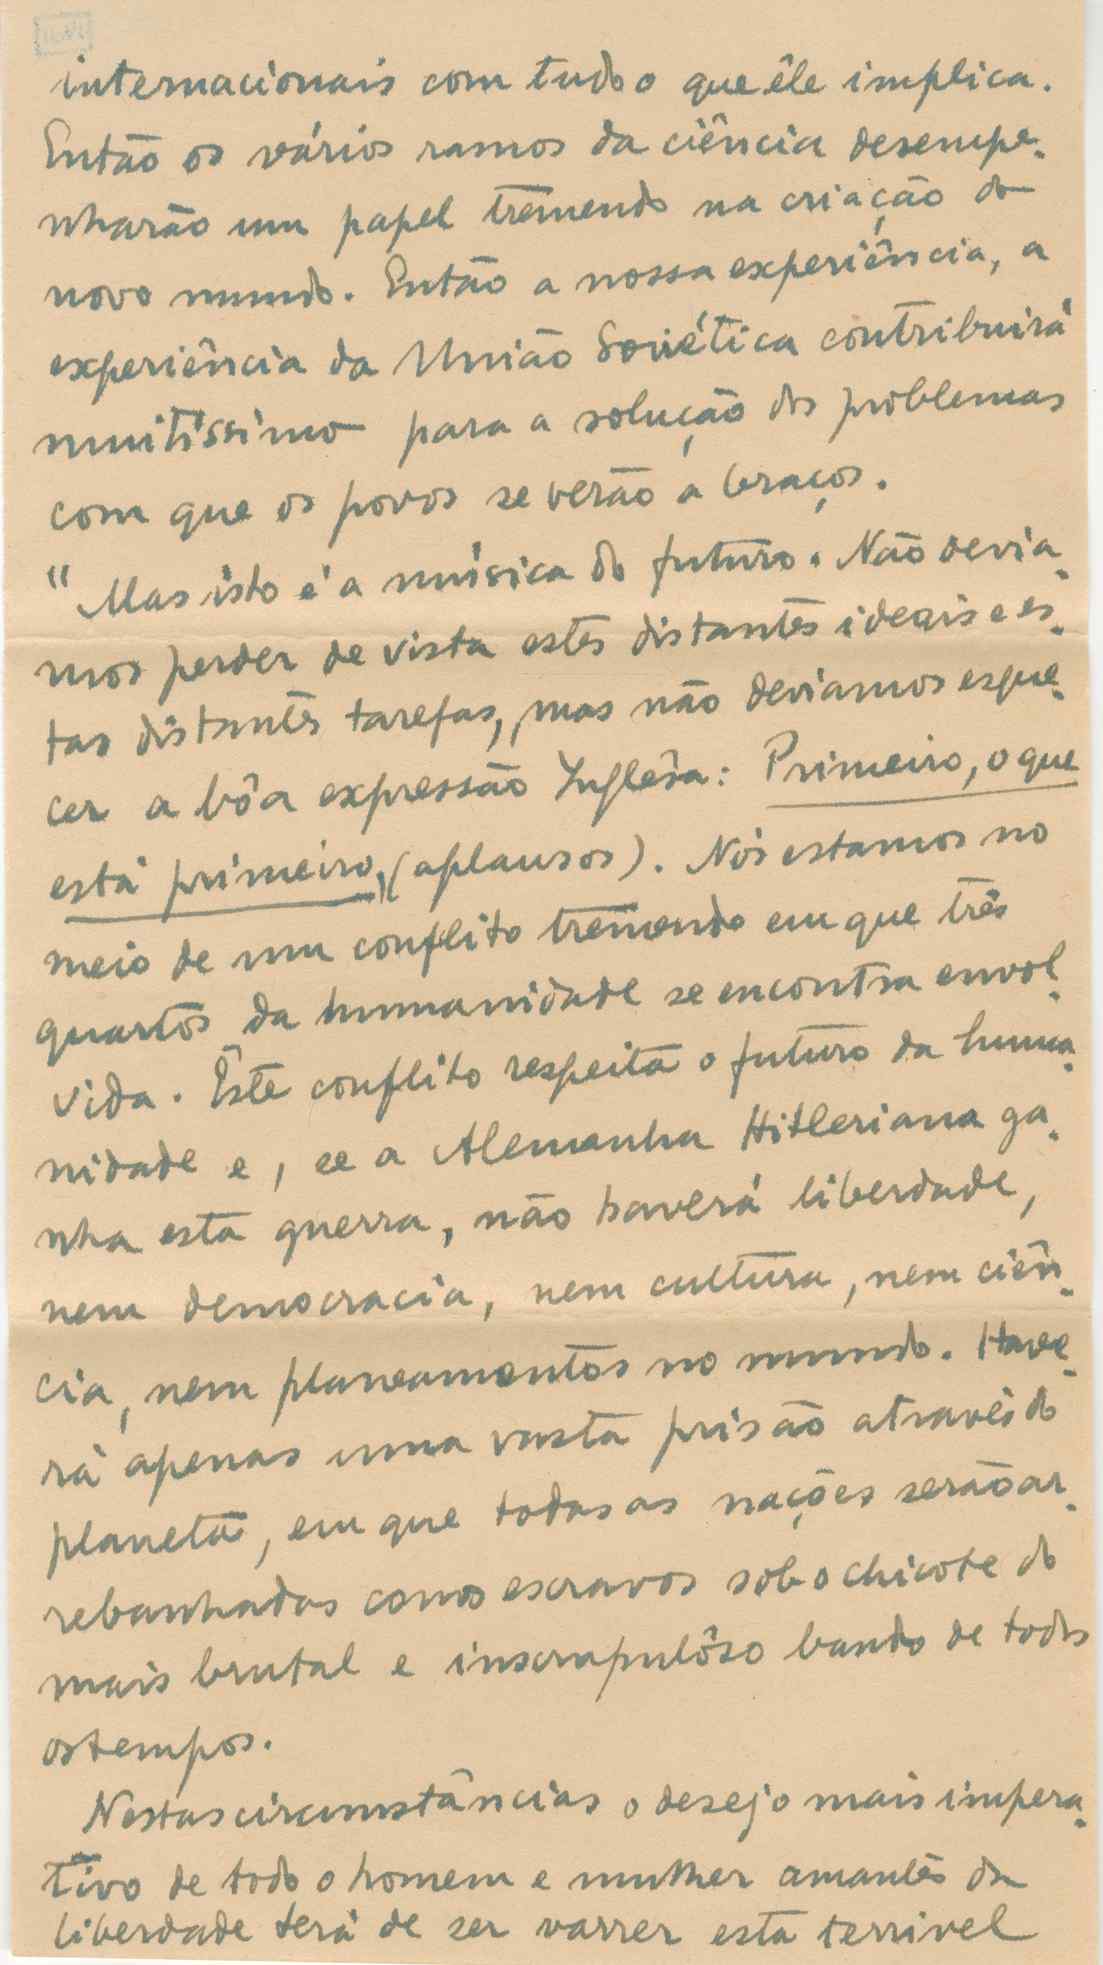 internacionais com tudo o que êle implica.
Então os vários ramos da ciência desempe-
nharão um papel tremendo na criação do
novo mundo. Então a nossa experiência, a
experiência da União Soviética contribuirá
muitíssimo para a solução dos problemas
com que os povos se verão a braços.
"Mas isto é a música do futuro. Não devia-
mos perder de vista estes distantes ideais e es-
tas distantes tarefas, mas não deviamos esque-
cer a bôa expressão Inglêsa: Primeiro, o que
está primeiro," (aplausos). Nós estamos no
meio de um conflito tremendo em que três
quartos da humanidade se encontra envol-
vida. Êste conflito respeita o futuro da huma-
nidade e, se a Alemanha Hitleriana ga-
nha esta guerra, não haverá liberdade,
nem democracia, nem cultura, nem ciên-
cia, nem planeamentos no mundo. Have-
rá apenas uma vasta prisão através do
planeta, em que todas as nações serão ar-
rebanhadas como escravos sob o chicote do
mais brutal e inscrapulôso bando de todos
os tempos.
Nestas circumstâncias o desejo mais impera-
tivo de todo o homem e mulher amantes da
liberdade terá de ser varrer esta terrivel